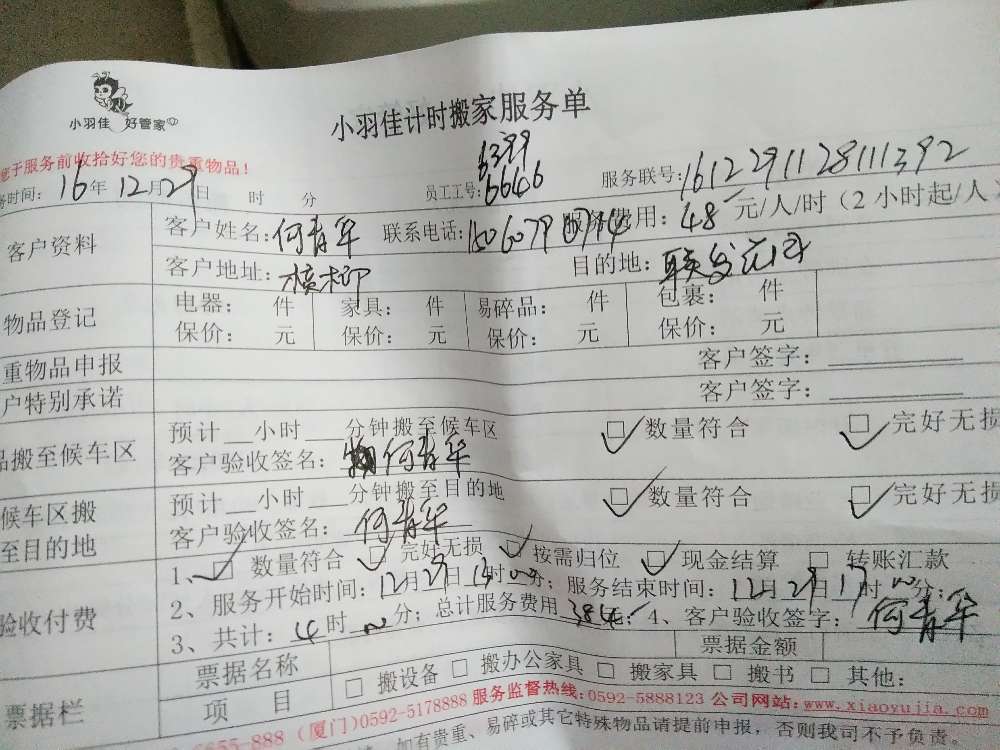 小羽佳 好管家
小羽佳计时搬家服务单
于服务前收拾好您的贵重物品！
时间：16年12月29日 时 分 员工工号：6399 6646 服务联号：161229112811392
客户资料 客户姓名：何青华 联系电话： 费用：48元/人/时（2小时起/人
客户地址：槟榔 目的地：联发
物品登记 电器： 件 家具： 件 易碎品： 件 包裹： 件
保价： 元 保价： 元 保价： 元 保价： 元
重物品申报 客户签字：
户特别承诺 客户签字：
品搬至候车区 预计__小时___分钟搬至候车区 数量符合 完好无损
客户验收签名：何青华
候车区搬至目的地 预计__小时___分钟搬至目的地 数量符合 完好无损
客户验收签名：何青华
验收付费 1、数量符合 完好无损 按需归位 现金结算 转账汇款
2、服务开始时间：12月29日13时00分；服务结束时间：12月29日17时00分；
3、共计：4时00分；总计服务费用384元；4、客户验收签字：何青华
票据栏 票据名称 票据金额
项 目 搬设备 搬办公家具 搬家具 搬书 其他：
5855-888（厦门）0592-5178888 服务监督热线：0592-5888123 公司网站：www.xiaoyujia.com
如有贵重、易碎或其它特殊物品请提前申报，否则我司不予负责。